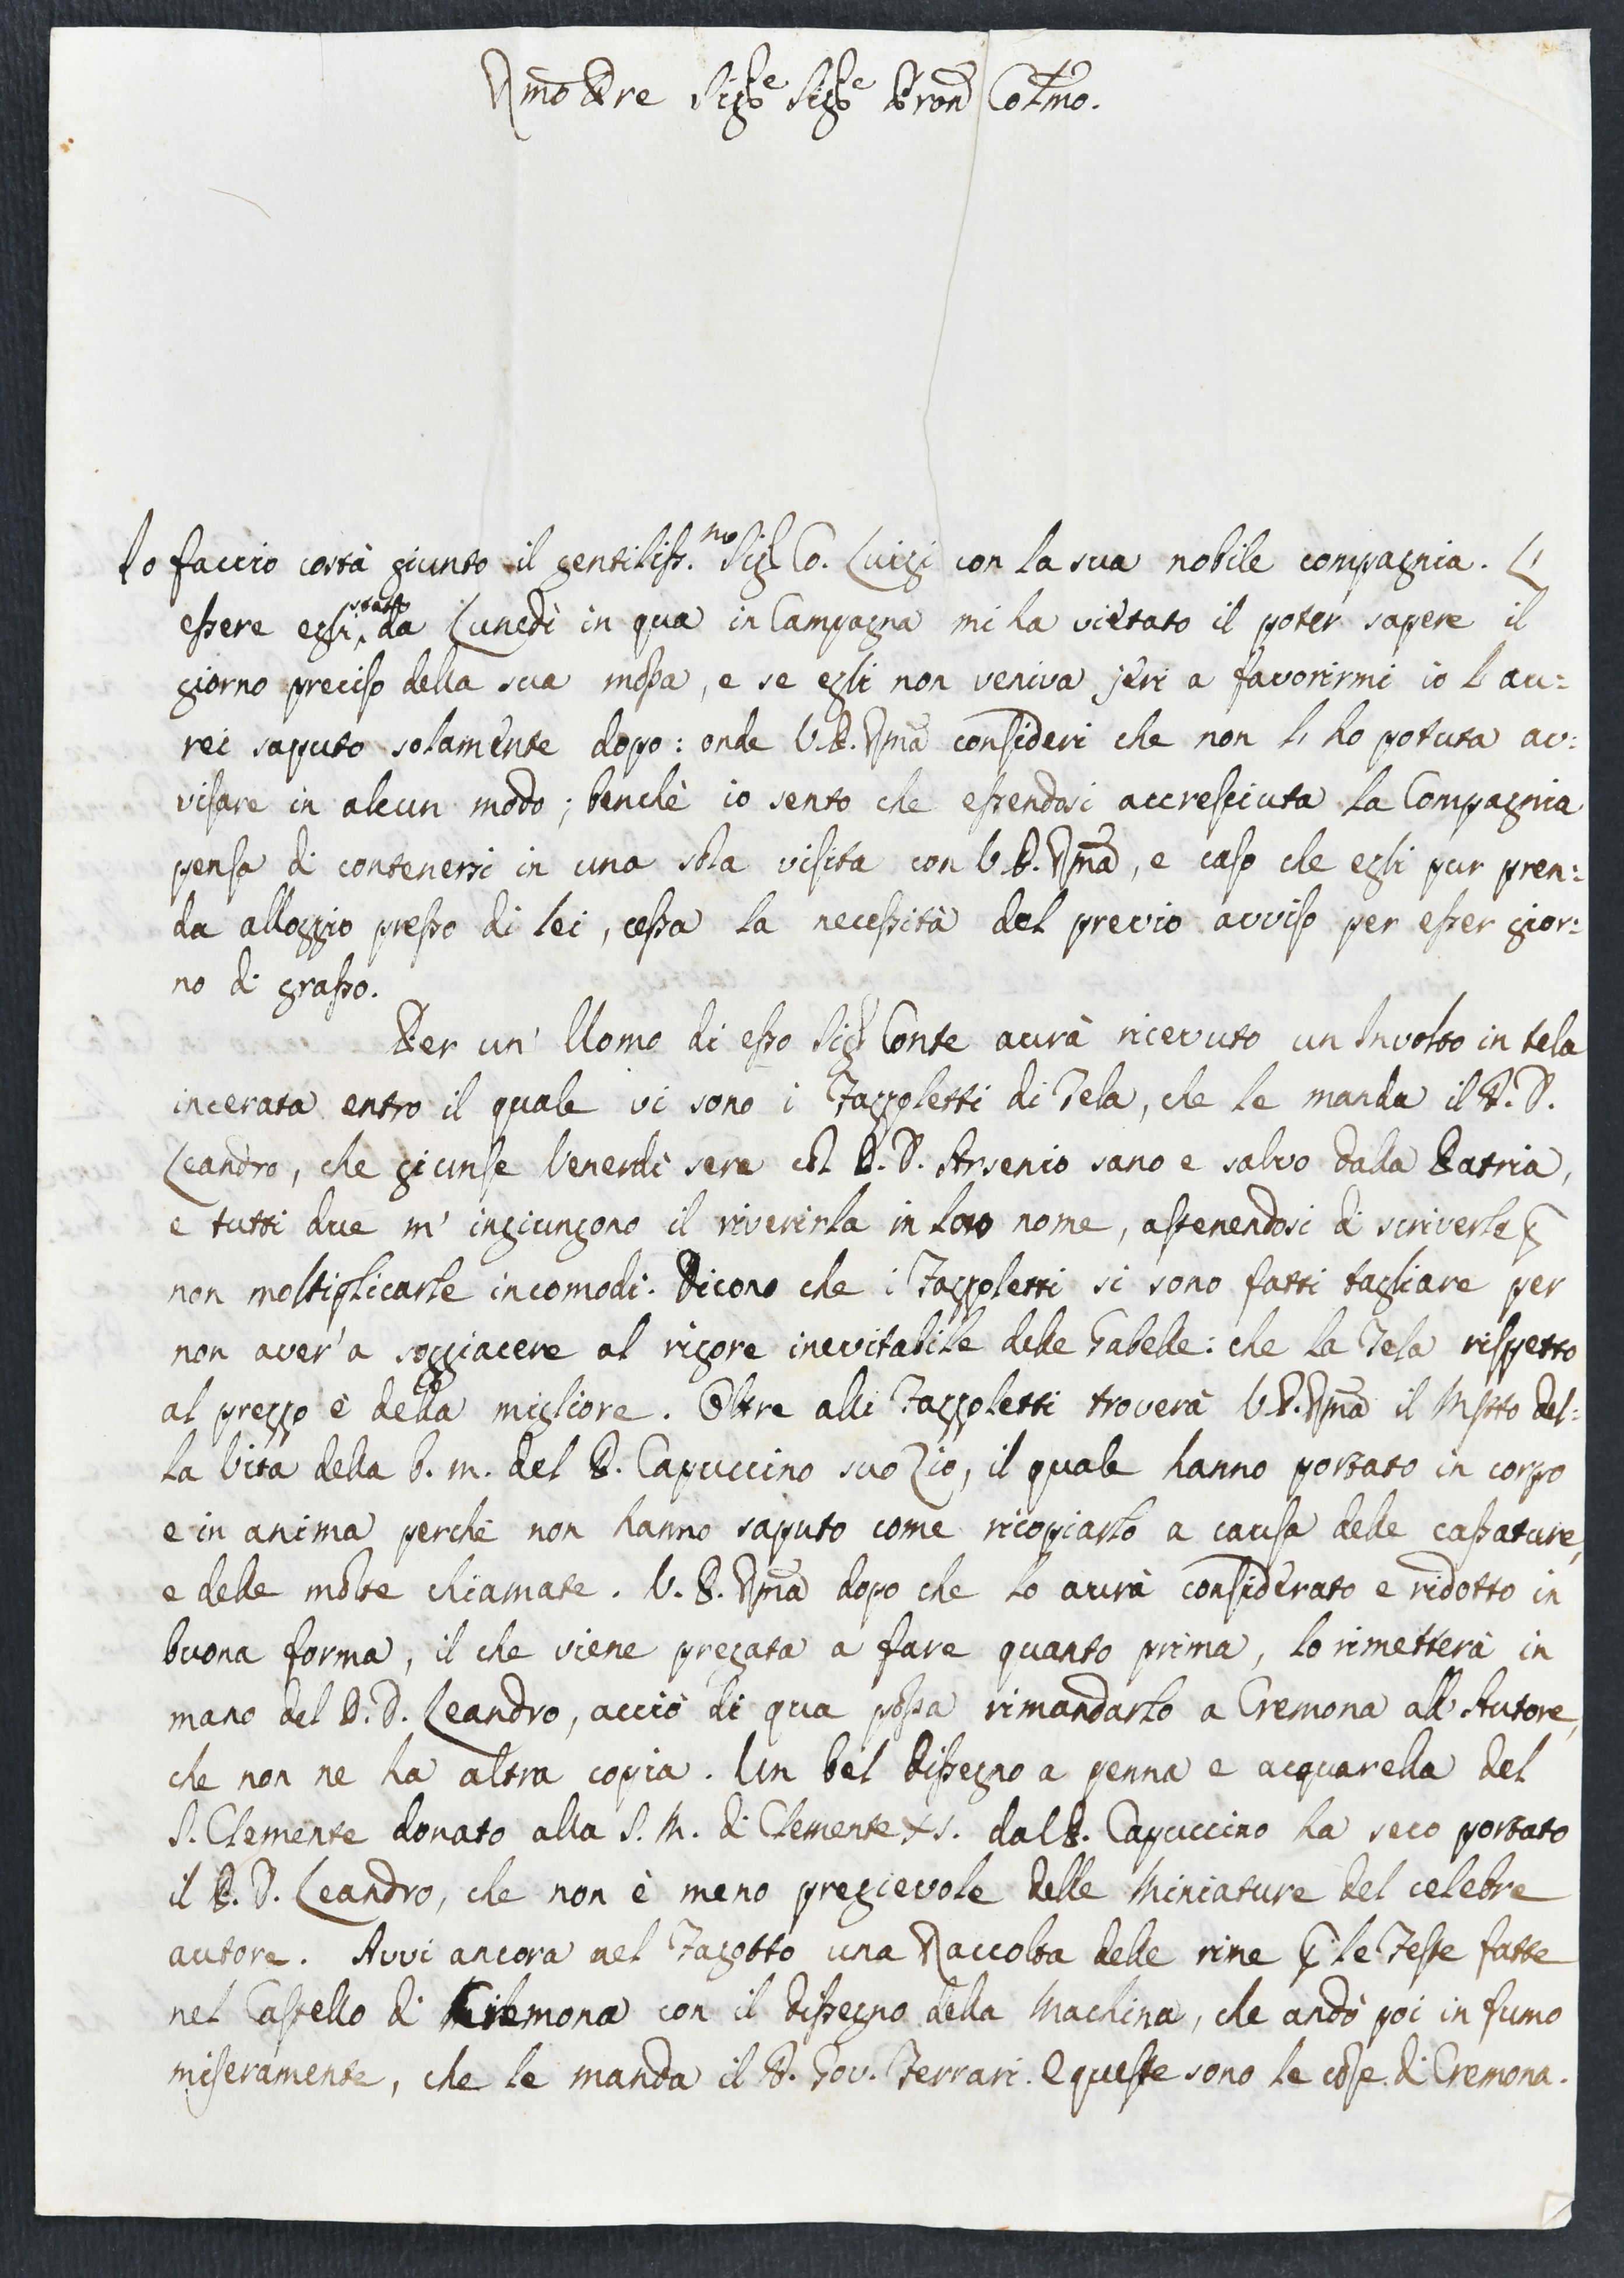 Rmo Pre Sigre Sigre Pron Colmo.
Io faccio costà giunto il gentiliss.mo Sigr Co. Luigi con la sua nobile compagnia. L'
essere egli stato da Lunedì in qua in Campagna mi ha vietato il poter sapere il
giorno preciso della sua mossa, e se egli non veniva jeri a favorirmi io l'au=
rei saputo solamente dopo: onde V.P. Rma consideri che non l'ho potuta av=
visare in alcun modo; benchè io sento che essendosi accresciuta la Compagnia
pensa di contenersi in una sola visita con V.P. Rma, e caso che egli pur pren=
da alloggio presso di lei, cessa la necessità del previo avviso per esser gior=
no di grasso.
Per un' Uomo di esso Sigr Conte aurà ricevuto un Involto in tela
incerata entro il quale vi sono i Fazzoletti di Tela, che le manda il P. D.
Leandro, che giunse Venerdì sera col P. D. Arsenio sano e salvo dalla Patria,
e tutti due m' ingiungono il riverirla in loro nome, astenendosi di scriverle p
non moltiplicarle incomodi. Dicono che i Fazzoletti si sono fatti tagliare per
non aver' a soggiacere al rigore inevitabile delle Gabelle: che la Tela rispetto
al prezzo è della migliore. Oltre alli Fazzoletti troverà V.P. Rma il Mstto del=
la Vita della b. m. del P. Capuccino suo Zio, il quale hanno portato in corpo
e in anima perchè non hanno saputo come ricopiarlo a causa delle cassature,
e delle molte chiamate. V. P. Rma dopo che lo aurà considerato e ridotto in
buona forma, il che viene pregata a fare quanto prima, lo rimetterà in
mano del P. D. Leandro, acciò di qua possa rimandarlo a Cremona all' Autore,
che non ne ha altra copia. Un bel dissegno a penna e acquarella del
S. Clemente donato alla S. M. di Clemente XI. dal P. Capuccino ha seco portato
il P. D. Leandro, che non è meno pregievole delle Miniature del celebre
autore. Avvi ancora nel Fagotto una Raccolta delle rime p le Feste fatte
nel Castello di Cremona con il dissegno della Machina, che andò poi in fumo
miseramente, che le manda il P. Gov. Ferrari. E queste sono le cose di Cremona.